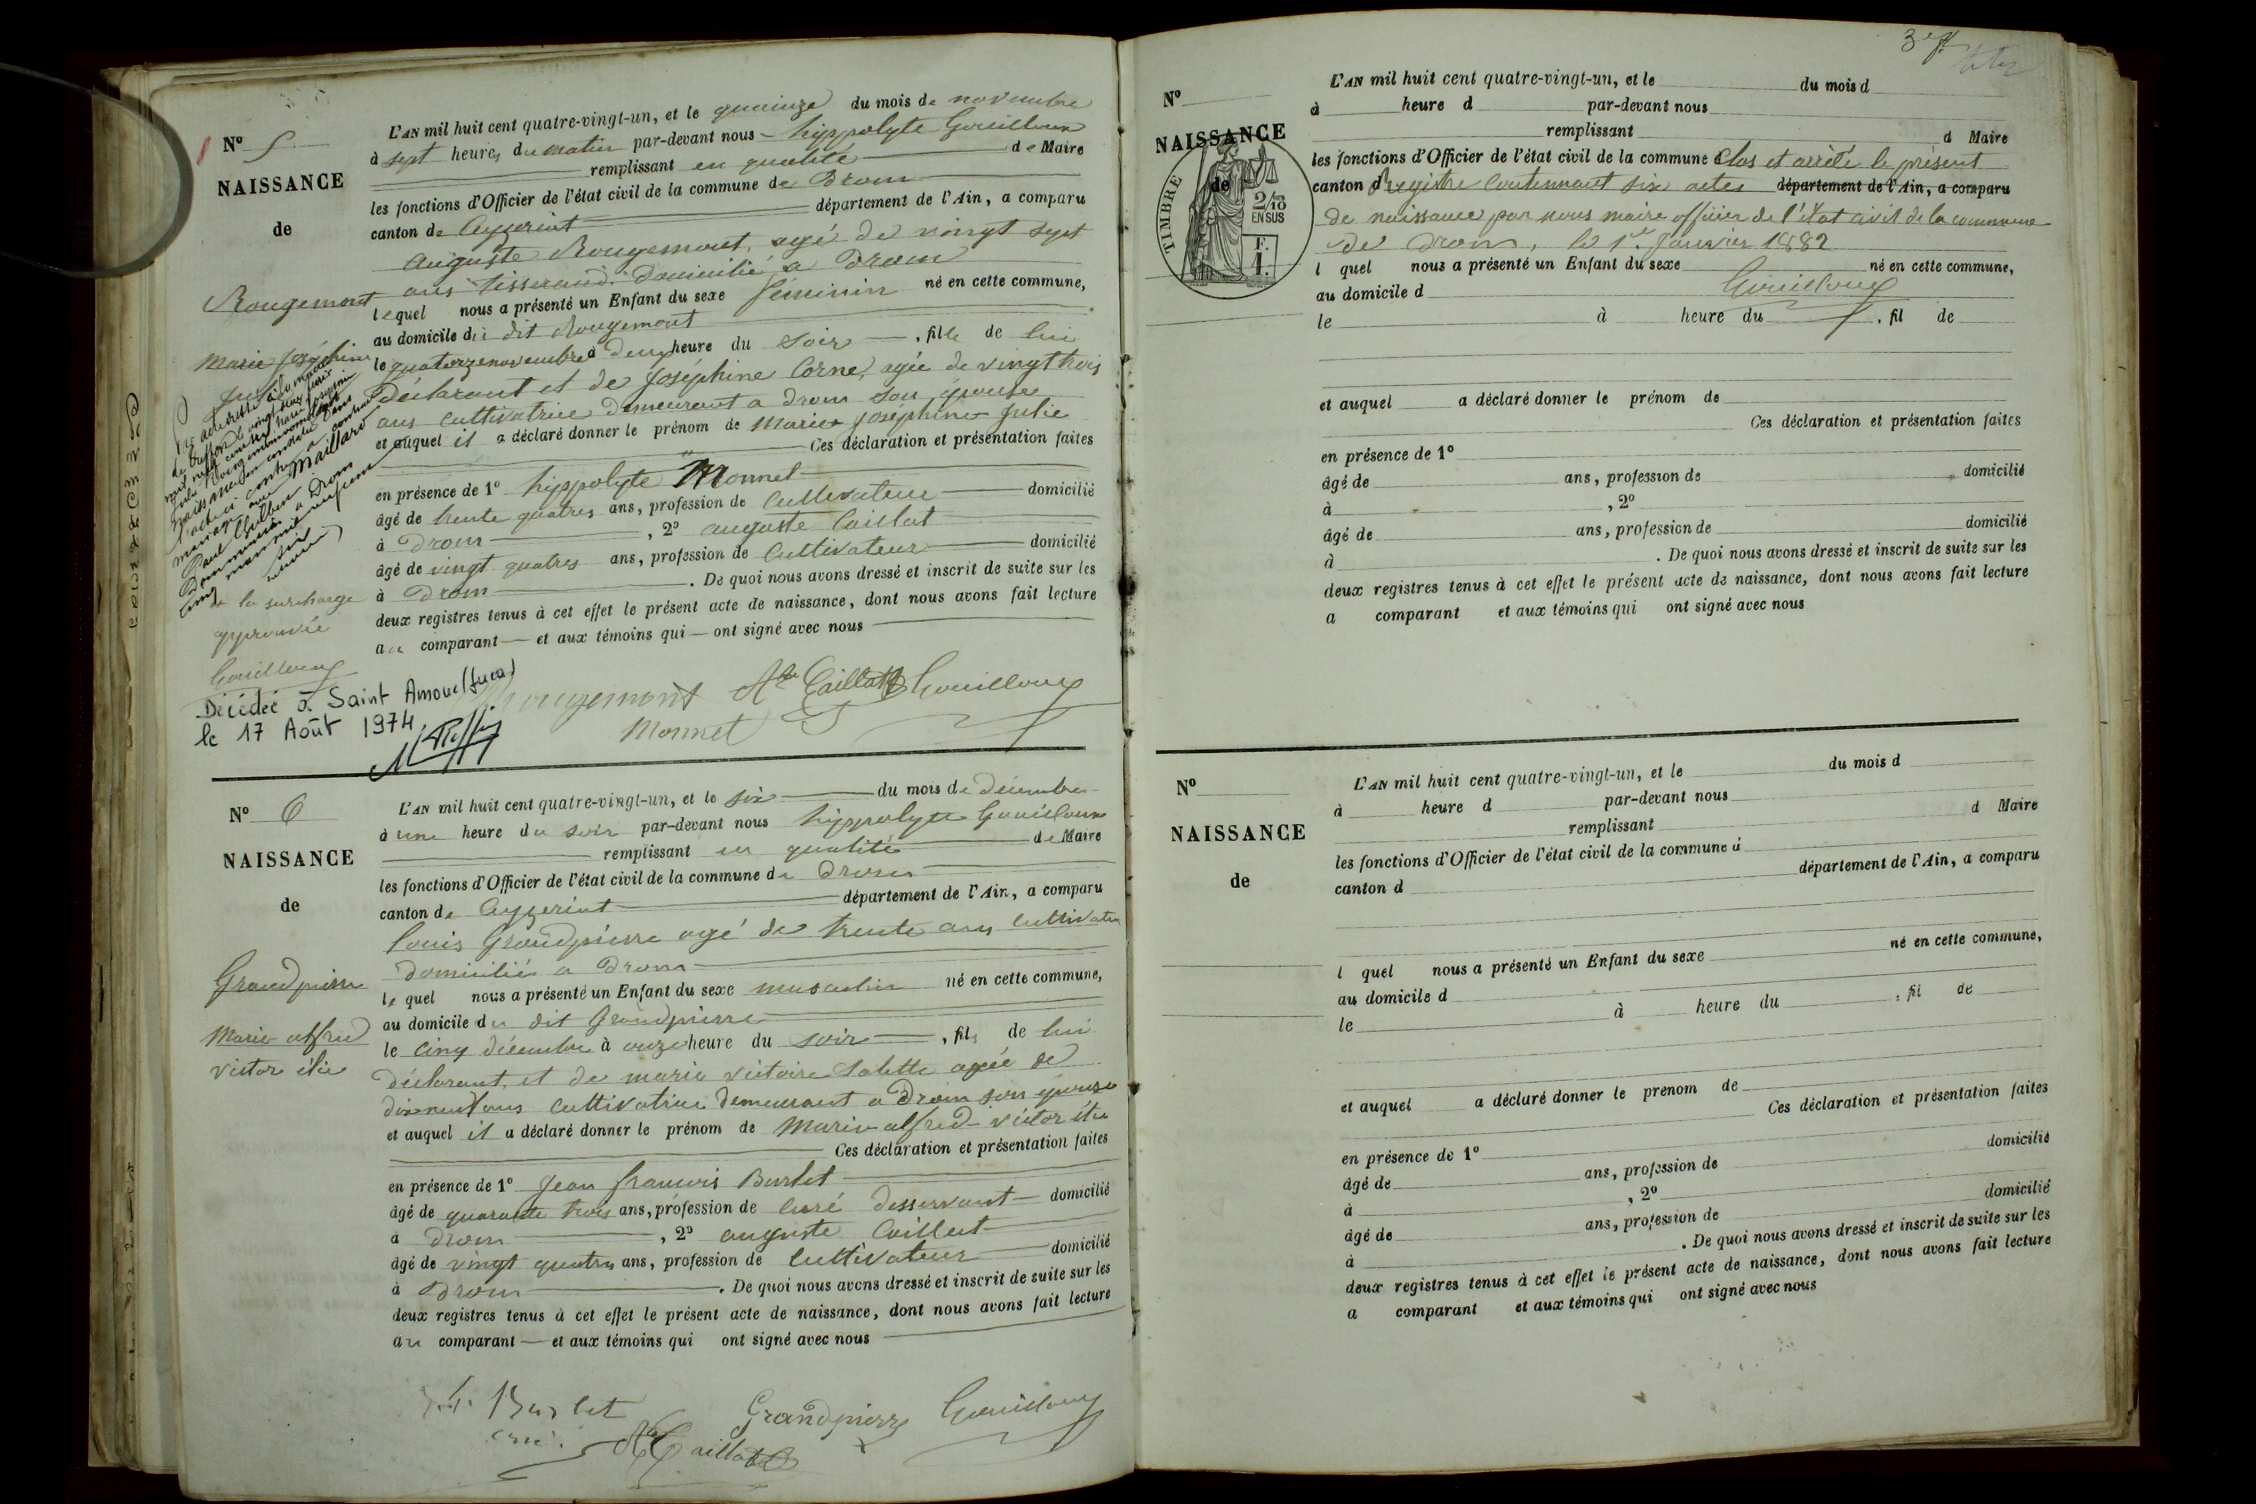 N° 5
NAISSANCE
de
Rougemont
Marie Joséphine
Julie
de la surcharge
approuvée
Gouilloux
Décédée à Saint Amour (Jura)
le 17 Août 1974
L'AN mil huit cent quatre-vingt-un, et le quinze du mois de novembre
à sept heures du matin par-devant nous hyppolyte Gouilloux
remplissant en qualité de Maire
les fonctions d'Officier de l'état civil de la commune de Drom
canton de Ceyzeriat département de l'Ain, a comparu
auguste Rougemont, agé de vingt sept
ans tisserand domicilié a Drom
lequel nous a présenté un Enfant du sexe féminin né en cette commune,
au domicile du dit Rougemont
le quatorze novembre à deux heure du soir, fille de lui
Déclarant et de Joséphine Corne, agée de vingt trois
ans cultivatrice demeurant a drom son épouse
et auquel il a déclaré donner le prénom de Marie Joséphine Julie
Ces déclaration et présentation faites
en présence de 1° hyppolyte Monnet
âgé de trente quatres ans, profession de Cultivateur domicilié
à Drom, 2° auguste Caillat
âgé de vingt quatres ans, profession de Cultivateur domicilié
à Drom. De quoi nous avons dressé et inscrit de suite sur les
deux registres tenus à cet effet le présent acte de naissance, dont nous avons fait lecture
au comparant et aux témoins qui ont signé avec nous
Rougemont Caillat Gouilloux
Monnet
N° 6
NAISSANCE
de
Grandpierre
Marie alfred
victor élie
L'AN mil huit cent quatre-vingt-un, et le six du mois de décembre
à une heure du soir par-devant nous hyppolyte Gouilloux
remplissant en qualité de Maire
les fonctions d'Officier de l'état civil de la commune de Drom
canton de Ceyzeriat département de l'Ain, a comparu
Louis Grandpierre agé de trente ans cultivateur
domicilié a Drom
le quel nous a présenté un Enfant du sexe masculin né en cette commune,
au domicile du dit Grandpierre
le cinq décembre à onze heure du soir, fils de lui
déclarant, et de marie victoire Salette agée de
dix neuf ans cultivatrice demeurant a Drom son épouse
et auquel il a déclaré donner le prénom de Marie alfred victor élie
Ces déclaration et présentation faites
en présence de 1° Jean francois Burlet
âgé de quarante trois ans, profession de curé desservant domicilié
à drom, 2° auguste Caillat
âgé de vingt quatres ans, profession de Cultivateur domicilié
à Drom. De quoi nous avons dressé et inscrit de suite sur les
deux registres tenus à cet effet le présent acte de naissance, dont nous avons fait lecture
au comparant et aux témoins qui ont signé avec nous
Burlet Grandpierre Gouilloux
curé Caillat
N°
NAISSANCE
de
TIMBRE
2/10
EN SUS
F.
1.
L'AN mil huit cent quatre-vingt-un, et le du mois d
à heure d par-devant nous
remplissant d Maire
les fonctions d'Officier de l'état civil de la commune Clos et arrêté le présent
canton d Registre Contennant six actes département de l'Ain, a comparu
de naissance par nous maire officier de l'état civil de la commune
de Drom, le 1er Janvier 1882
l quel nous a présenté un Enfant du sexe né en cette commune,
au domicile d Gouilloux
le à heure du, fil de
et auquel a déclaré donner le prénom de
Ces déclaration et présentation faites
en présence de 1°
âgé de ans, profession de domicilié
à , 2°
âgé de ans, profession de domicilié
à . De quoi nous avons dressé et inscrit de suite sur les
deux registres tenus à cet effet le présent acte de naissance, dont nous avons fait lecture
a comparant et aux témoins qui ont signé avec nous
N°
NAISSANCE
de
L'AN mil huit cent quatre-vingt-un, et le du mois d
à heure d par-devant nous
remplissant d Maire
les fonctions d'Officier de l'état civil de la commune d
canton d département de l'Ain, a comparu
l quel nous a présenté un Enfant du sexe né en cette commune,
au domicile d
le à heure du , fil de
et auquel a déclaré donner le prenom de
Ces déclaration et présentation faites
en présence de 1°
âgé de ans, profession de domicilié
à , 2°
âgé de ans, profession de domicilié
à . De quoi nous avons dressé et inscrit de suite sur les
deux registres tenus à cet effet le présent acte de naissance, dont nous avons fait lecture
a comparant et aux témoins qui ont signé avec nous